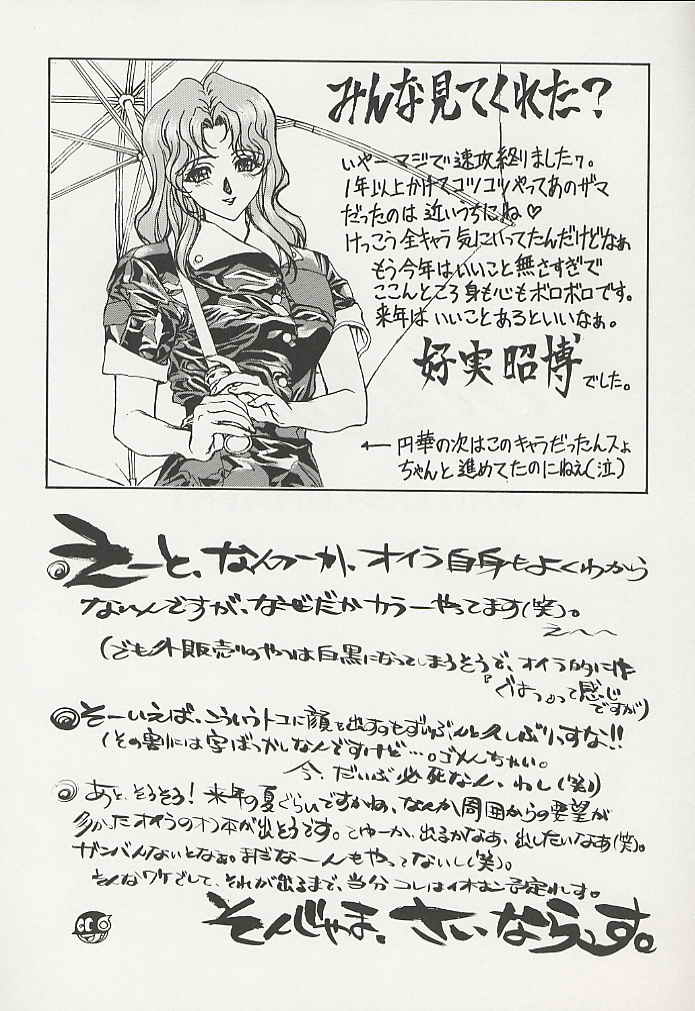 みんな見てくれた?
いやーマジで速攻終りましたァ。
1年以上かけてコツコツやってあのザマ
だったのは近いうちにね♡
けっこう全キャラ気にいってたんだけどなぁ
もう今年はいいこと無さすぎで
ここんところ身も心もボロボロです。
来年はいいことあるといいなぁ。
好実昭博でした。
← 円華の次はこのキャラだったんスよ
ちゃんと進めてたのにねえ(泣)
えーと、なんつーか、オイラ自身もよくわから
ないんですが、なぜだかカラーやってます(笑)。
えへへ
(でも外販売りのやつは白黒になってしまうそうで、オイラ的に
『ぐはっ』って感じ
ですが)
そーいえば、こういうトコに顔を出すのもずいぶんと久しぶりっすな!!
(その割には字ばっかしなんですけど…。ゴメんちゃい。
今、だいぶ必死なん、わし(笑))
あと、そうそう! 来年の夏ぐらいですかね、なんか周囲からの要望が
多かったオイラのオフ本が出そうです。てゆーか、出るかなあ、出したいなあ(笑)。
ガンバんないとなぁ。まだなーんもやってないし(笑)。
そんなワケでして、それが出るまで、当分コレは予定れす。
そんじゃま、さいならっす。